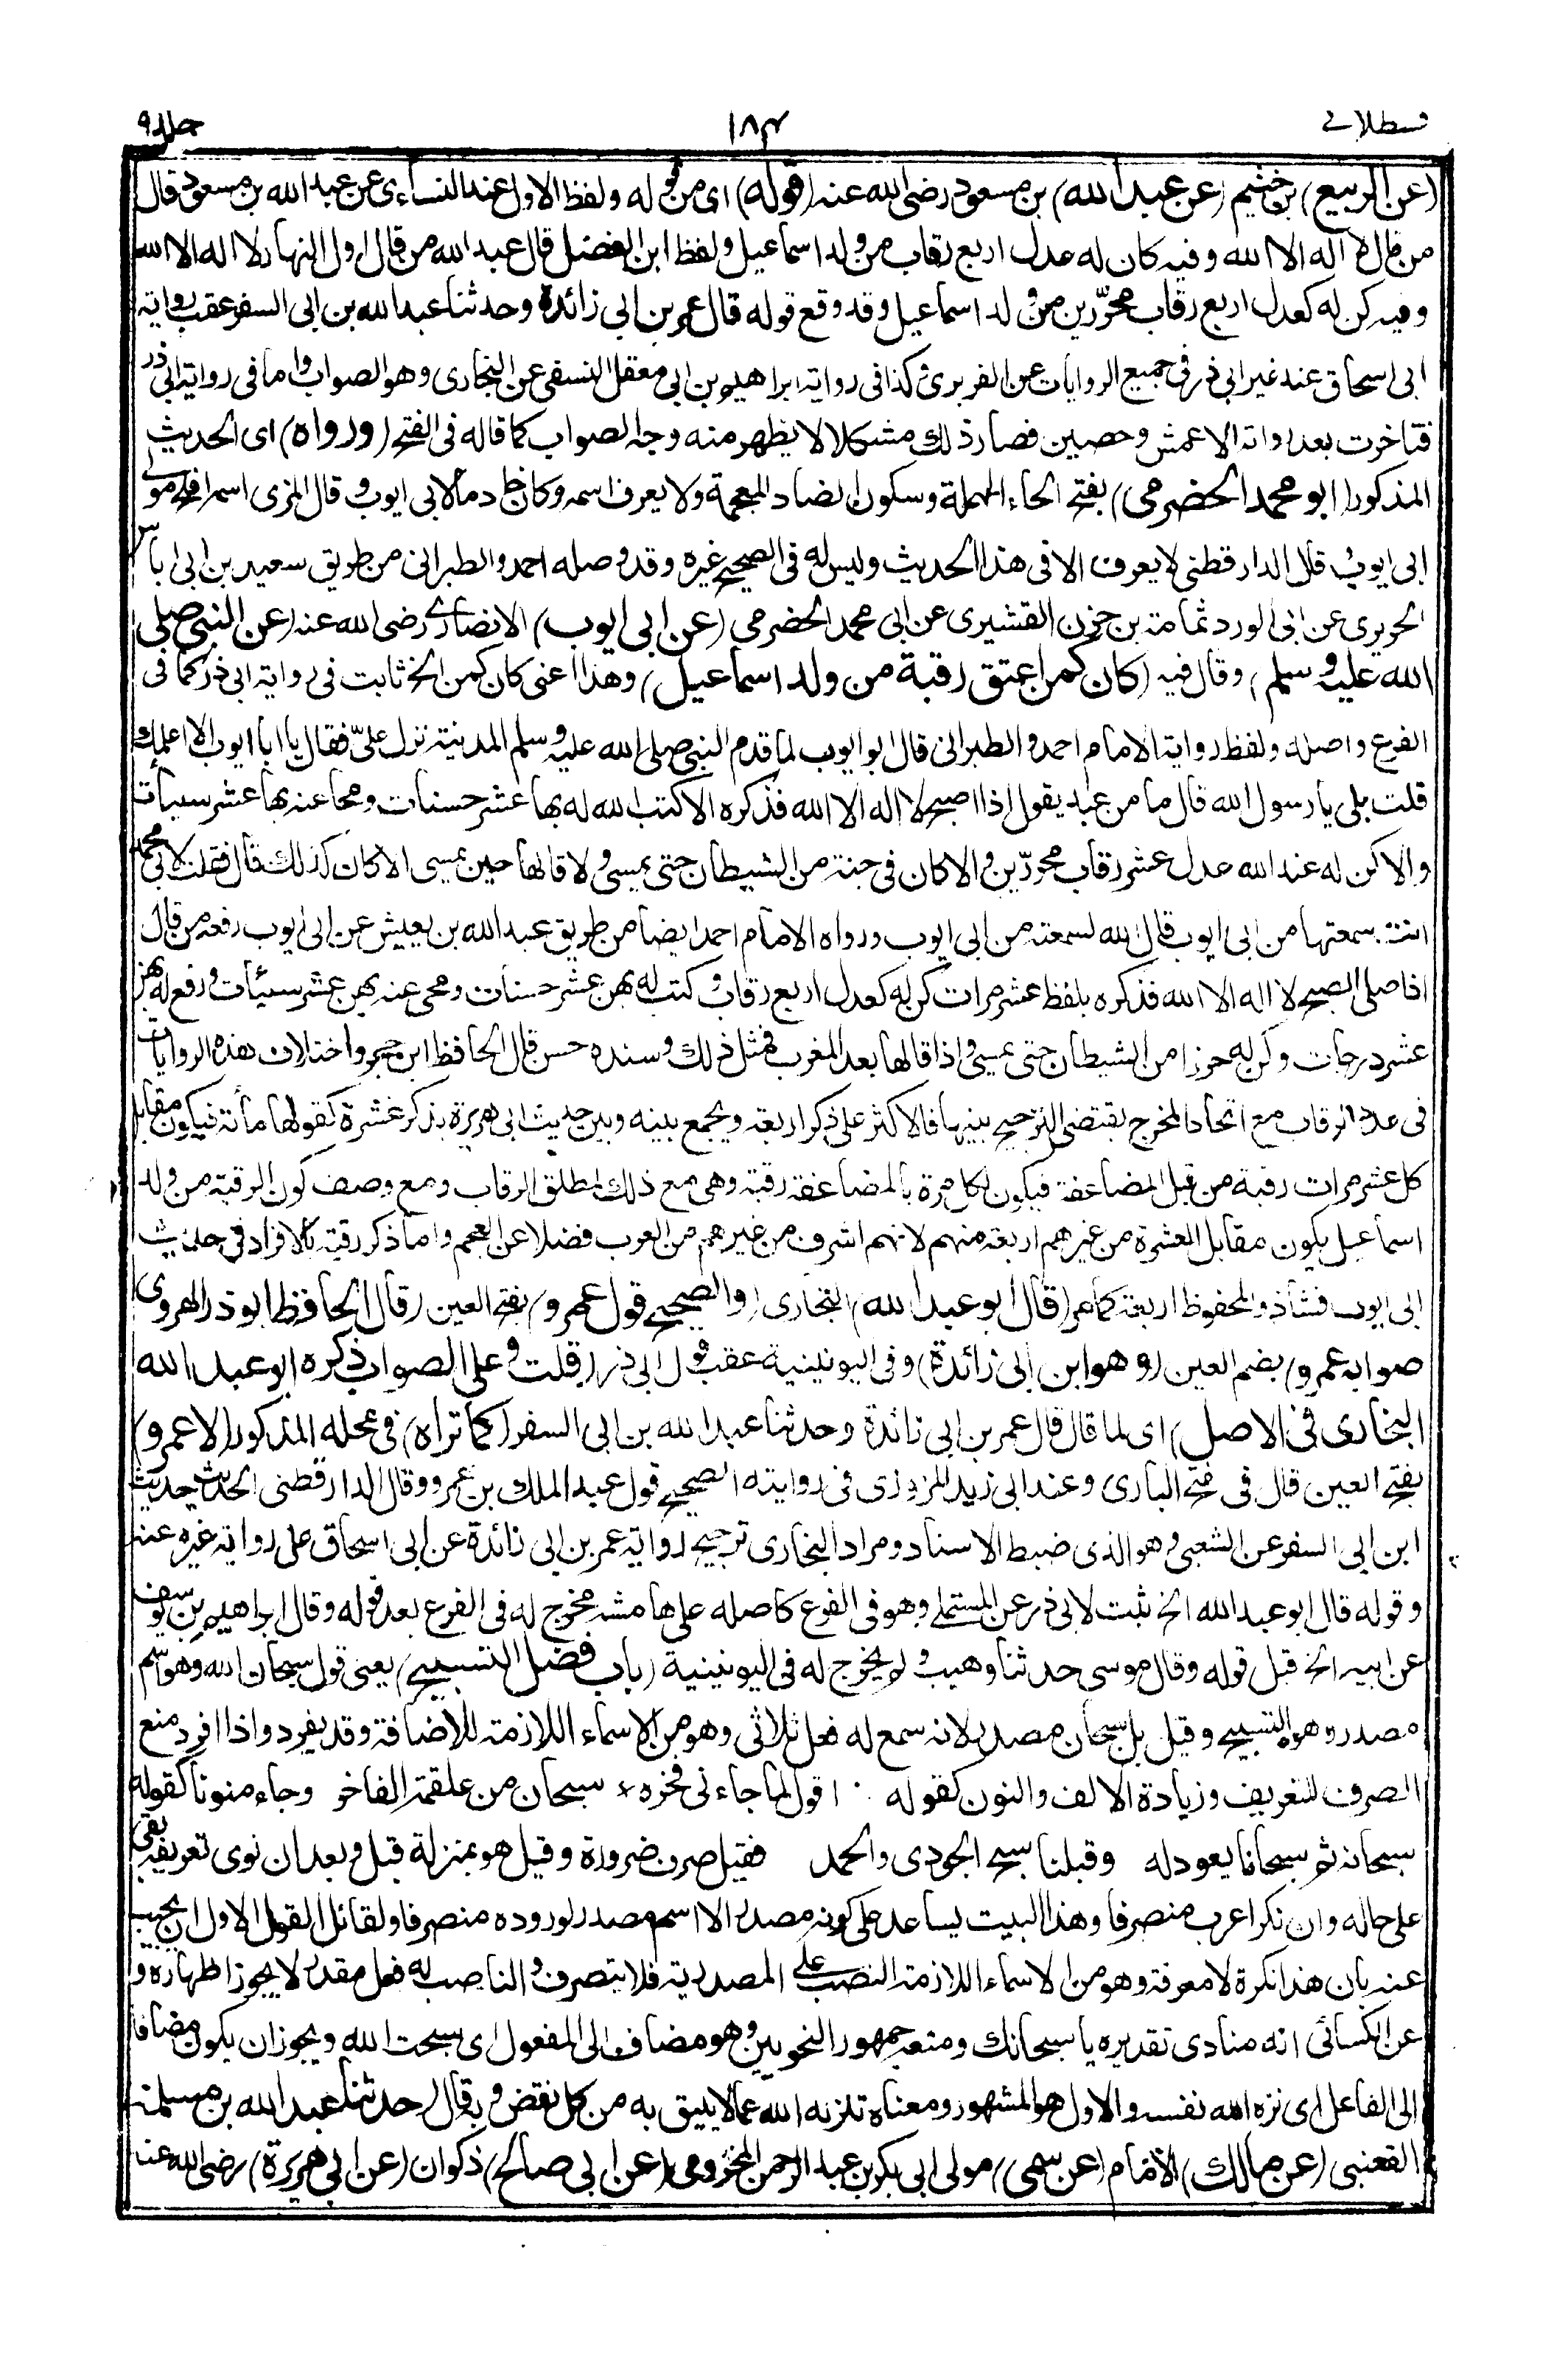 قسطلانے ١٨٤ جلد٩
(عن الربيع) بن خثيم (عن عبد الله) بن مسعود رضى الله عنه (قوله) اى من قوله ولفظ الاول عند النساءى عن عبد الله بن مسعود قال
من قال لا اله الا الله وفيه كان له عدل اربع رقاب من ولد اسماعيل ولفظ ابن الفضيل قال عبد الله من قال اول النهار لا اله الا الله
وفيه كن له كعدل اربع رقاب محرّرين من ولد اسماعيل وقد وقع قوله قال عمر بن ابى زائدة وحدثنا عبد الله بن ابى السفر عقب رواية
ابى اسحاق عند غير ابى ذر فى جميع الروايات عن الفربرى وكذا فى رواية ابراهيم بن ابى معقل النسفى عن البخارى وهو الصواب واما فى رواية ابى ذر
فتاخرت بعد رواية الاعمش وحصين فصار ذلك مشكلا لا يظهر منه وجه الصواب كما قاله فى الفتح (ورواه) اى الحديث
المذكور (ابو محمد الحضرمى) بفتح الحاء المهملة وسكون الضاد المعجمة ولا يعرف اسمه وكان خادما لابى ايوب وقال المزى اسمه افلح مولى
ابى ايوب قال الدارقطنى لا يعرف الا فى هذا الحديث وليس له فى الصحيح غيره وقد وصله احمد والطبرانى من طريق سعيد بن ابى اياس
الجريرى عن ابى الورد ثمامة بن حزن القشيرى عن ابى محمد الحضرمى (عن ابى ايوب) الانصارے رضى الله عنه (عن النبى صلى
الله عليه وسلم) وقال فيه (كان كمن اعتق رقبة من ولد اسماعيل) وهذا اعنى كان كمن الخ ثابت فى رواية ابى ذر كما فى
الفرع واصله ولفظ رواية الامام احمد والطبرانى قال ابو ايوب لما قدم النبى صلى الله عليه وسلم المدينة نزل علىّ فقال يا ابا ايوب الا اعلمك
قلت بلى يا رسول الله قال ما من عبد يقول اذا اصبح لا اله الا الله فذكره الا كتب الله له بها عشر حسنات ومحا عنه بها عشر سيأت
والا كن له عند الله عدل عشر رقاب محرّرين والا كان فى جنة من الشيطان حتى يمسى ولا قالها حين يمسى الا كان كذلك قال فقلت لابى محمد
انت سمعتها من ابى ايوب قال الله لسمعته من ابى ايوب ورواه الامام احمد ايضا من طريق عبد الله بن يعيش عن ابى ايوب رفعه من قال
اذا صلى الصبح لا اله الا الله فذكره بلفظ عشر مرات كن له كعدل اربع رقاب وكتب له بهن عشر حسنات ومحى عنه بهن عشر سيئات ورفع له بهن
عشر درجات وكن له حرزا من الشيطان حتى يمسى واذا قالها بعد المغرب فمثل ذلك وسنده حسن قال الحافظ ابن حجر واختلاف هذه الروايات
فى عدد الرقاب مع اتحاد المخرج يقتضى الترجيح بينها فالاكثر على ذكر اربعة ويجمع بينه وبين حديث ابى هريرة بذكر عشرة كقولها مأنة فيكون مقابل
كل عشر مرات رقبة من قبل المضاعفة فيكون لكل مرة بالمضاعفة رقبة وهى مع ذلك لمطلق الرقاب ومع وصف كون الرقبة من ولد
اسماعيل يكون مقابل العشرة من غيرهم اربعة منهم لانهم اشرف من غيرهم من العرب فضلا عن العجم واما ذكر رقبة بالافراد فى حديث
ابى ايوب فشاذ والمحفوظ اربعة كما مر (قال ابو عبد الله) البخارى (والصحيح قول عمرو) بفتح العين (قال الحافظ ابو ذر الهروى
صوابه عمر و) بضم العين (وهو ابن ابى زائدة) وفى اليونينية عقب قول ابى ذر (قلت وعلى الصواب ذكره ابو عبد الله
البخارى فى الاصل) اى لما قال قال عمر بن ابى زائدة وحدثنا عبد الله بن ابى السفر (كما تراه) فى محله المذكور (لا عمرو)
بفتح العين قال فى فتح البارى وعند ابى زيد المروزى فى روايته الصحيح قول عبد الملك بن عمرو وقال الدارقطنى الحديث حديث
ابن ابى السفر عن الشعبى وهو الذى ضبط الاسناد ومراد البخارى ترجيح رواية عمر بن ابى زائدة عن ابى اسحاق على رواية غيره عنه
وقوله قال ابو عبد الله الخ ثبت لابى ذر عن المستملے وهو فى الفرع كاصله على هامشه مخرج له فى الفرع بعد قوله وقال ابراهيم بن يوسف
عن ابيه الخ قبل قوله وقال موسى حدثنا وهيب ولم يخرج له فى اليونينية (باب فضل التسبيح) يعنى قول سبحان الله وهو اسم
مصدر وهو التسبيح وقيل بل سبحان مصدر لانه سمع له فعل ثلاثى وهو من الاسماء اللازمة للاضافة وقد يفرد واذا افرد منع
الصرف للتعريف وزيادة الالف والنون كقوله اقول لما جاءنى فخره سبحان من علقمة الفاخر وجاء منونا كقوله
سبحانه ثم سبحانا يعود له وقبلنا سبح الجودى والجمد فقيل صرف ضرورة وقيل هو بمنزلة قبل وبعد ان نوى تعريفه بقى
على حاله وان نكر اعرب منصرفا وهذا البيت يساعد على كونه مصدرا لا اسم مصدر لوروده منصرفا ولقائل القول الاول ان يجيب
عنه بان هذا نكرة لا معرفة وهو من الاسماء اللازمة النصب على المصدرية فلا يتصرف والناصب له فعل مقدر لا يجوز اظهاره و
عن الكسائى انه منادى تقديره يا سبحانك ومنعه جمهور النحويين وهو مضاف الى المفعول اى سبحت الله ويجوز ان يكون مضافا
الى الفاعل اى نزه الله نفسه والاول هو المشهور ومعناه تنزيه الله عما لا يليق به من كل نقص وبه قال (حدثنا عبد الله بن مسلمة
القعنبى (عن مالك) الامام (عن سمى) مولى ابى بكر بن عبد الرحمن المخزومى (عن ابى صالح) ذكوان (عن ابى هريرة) رضى الله عنه